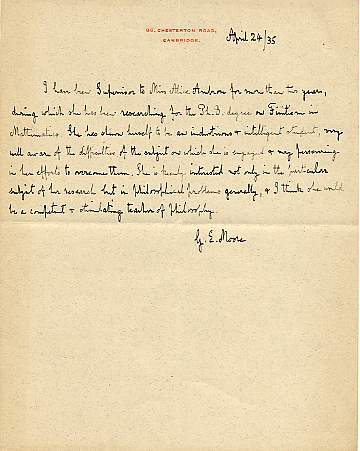 86, CHESTERTON ROAD,
CAMBRIDGE.
April 24/35
I have been Supervisor to Miss Alice Ambrose for more than two years,
during which she has been researching for the Ph.D. degree on Finitism in
Mathematics. She has shown herself to be an industrious & intelligent student, very
well aware of the difficulties of the subject on which she is engaged & very persevering
in her efforts to overcome them. She is keenly interested not only in the particular
subject of her research but in philosophical problems generally, & I think she would
be a competent & stimulating teacher of philosophy.
G. E. Moore